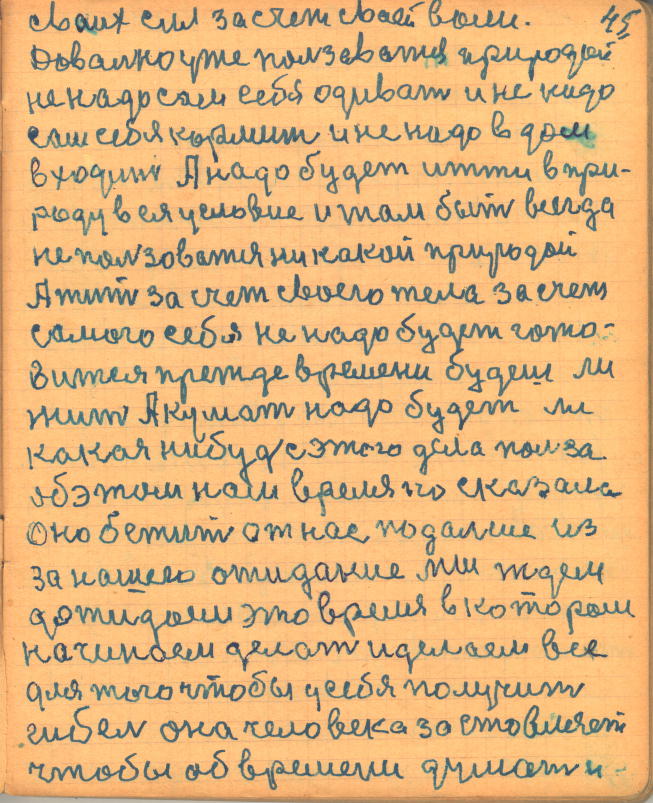 своих сил за счет своей воли. 45
Довално уже ползоватся природой
не надо сам себя одиват и не надо
сам себя кормит и не надо в дом
входит А надо будет итти в при-
роду в ея условие и там быт всегда
не ползоватся ни какой природой
А жит за счет своего тела за счет
самого себя не надо будет гото-
вится прежде времени будеш ли
жит А думат надо будет ли
какая нибуд с этого дела полза
об этом нам время но сказала
Оно бежит от нас подалше из
за нашего ожидание мы ждем
дожидаем это время в котором
начинаем делат и делаем все
для того чтобы у себя получит
гибел она человека заставляет
чтобы об времени думат и